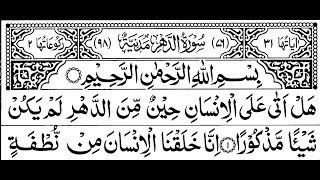 اٰيَاتُهَا ٣١ (٧٦) سُوْرَةُ الدَّهْرِ مَدَنِيَّةٌ (٩٨) رُكُوْعَاتُهَا ٢
بِسْمِ اللّٰهِ الرَّحْمٰنِ الرَّحِيْمِ
هَلْ اَتٰى عَلَى الْاِنْسَانِ حِيْنٌ مِّنَ الدَّهْرِ لَمْ يَكُنْ
شَيْـًٔا مَّذْكُوْرًا ۝١ اِنَّا خَلَقْنَا الْاِنْسَانَ مِنْ نُّطْفَةٍ